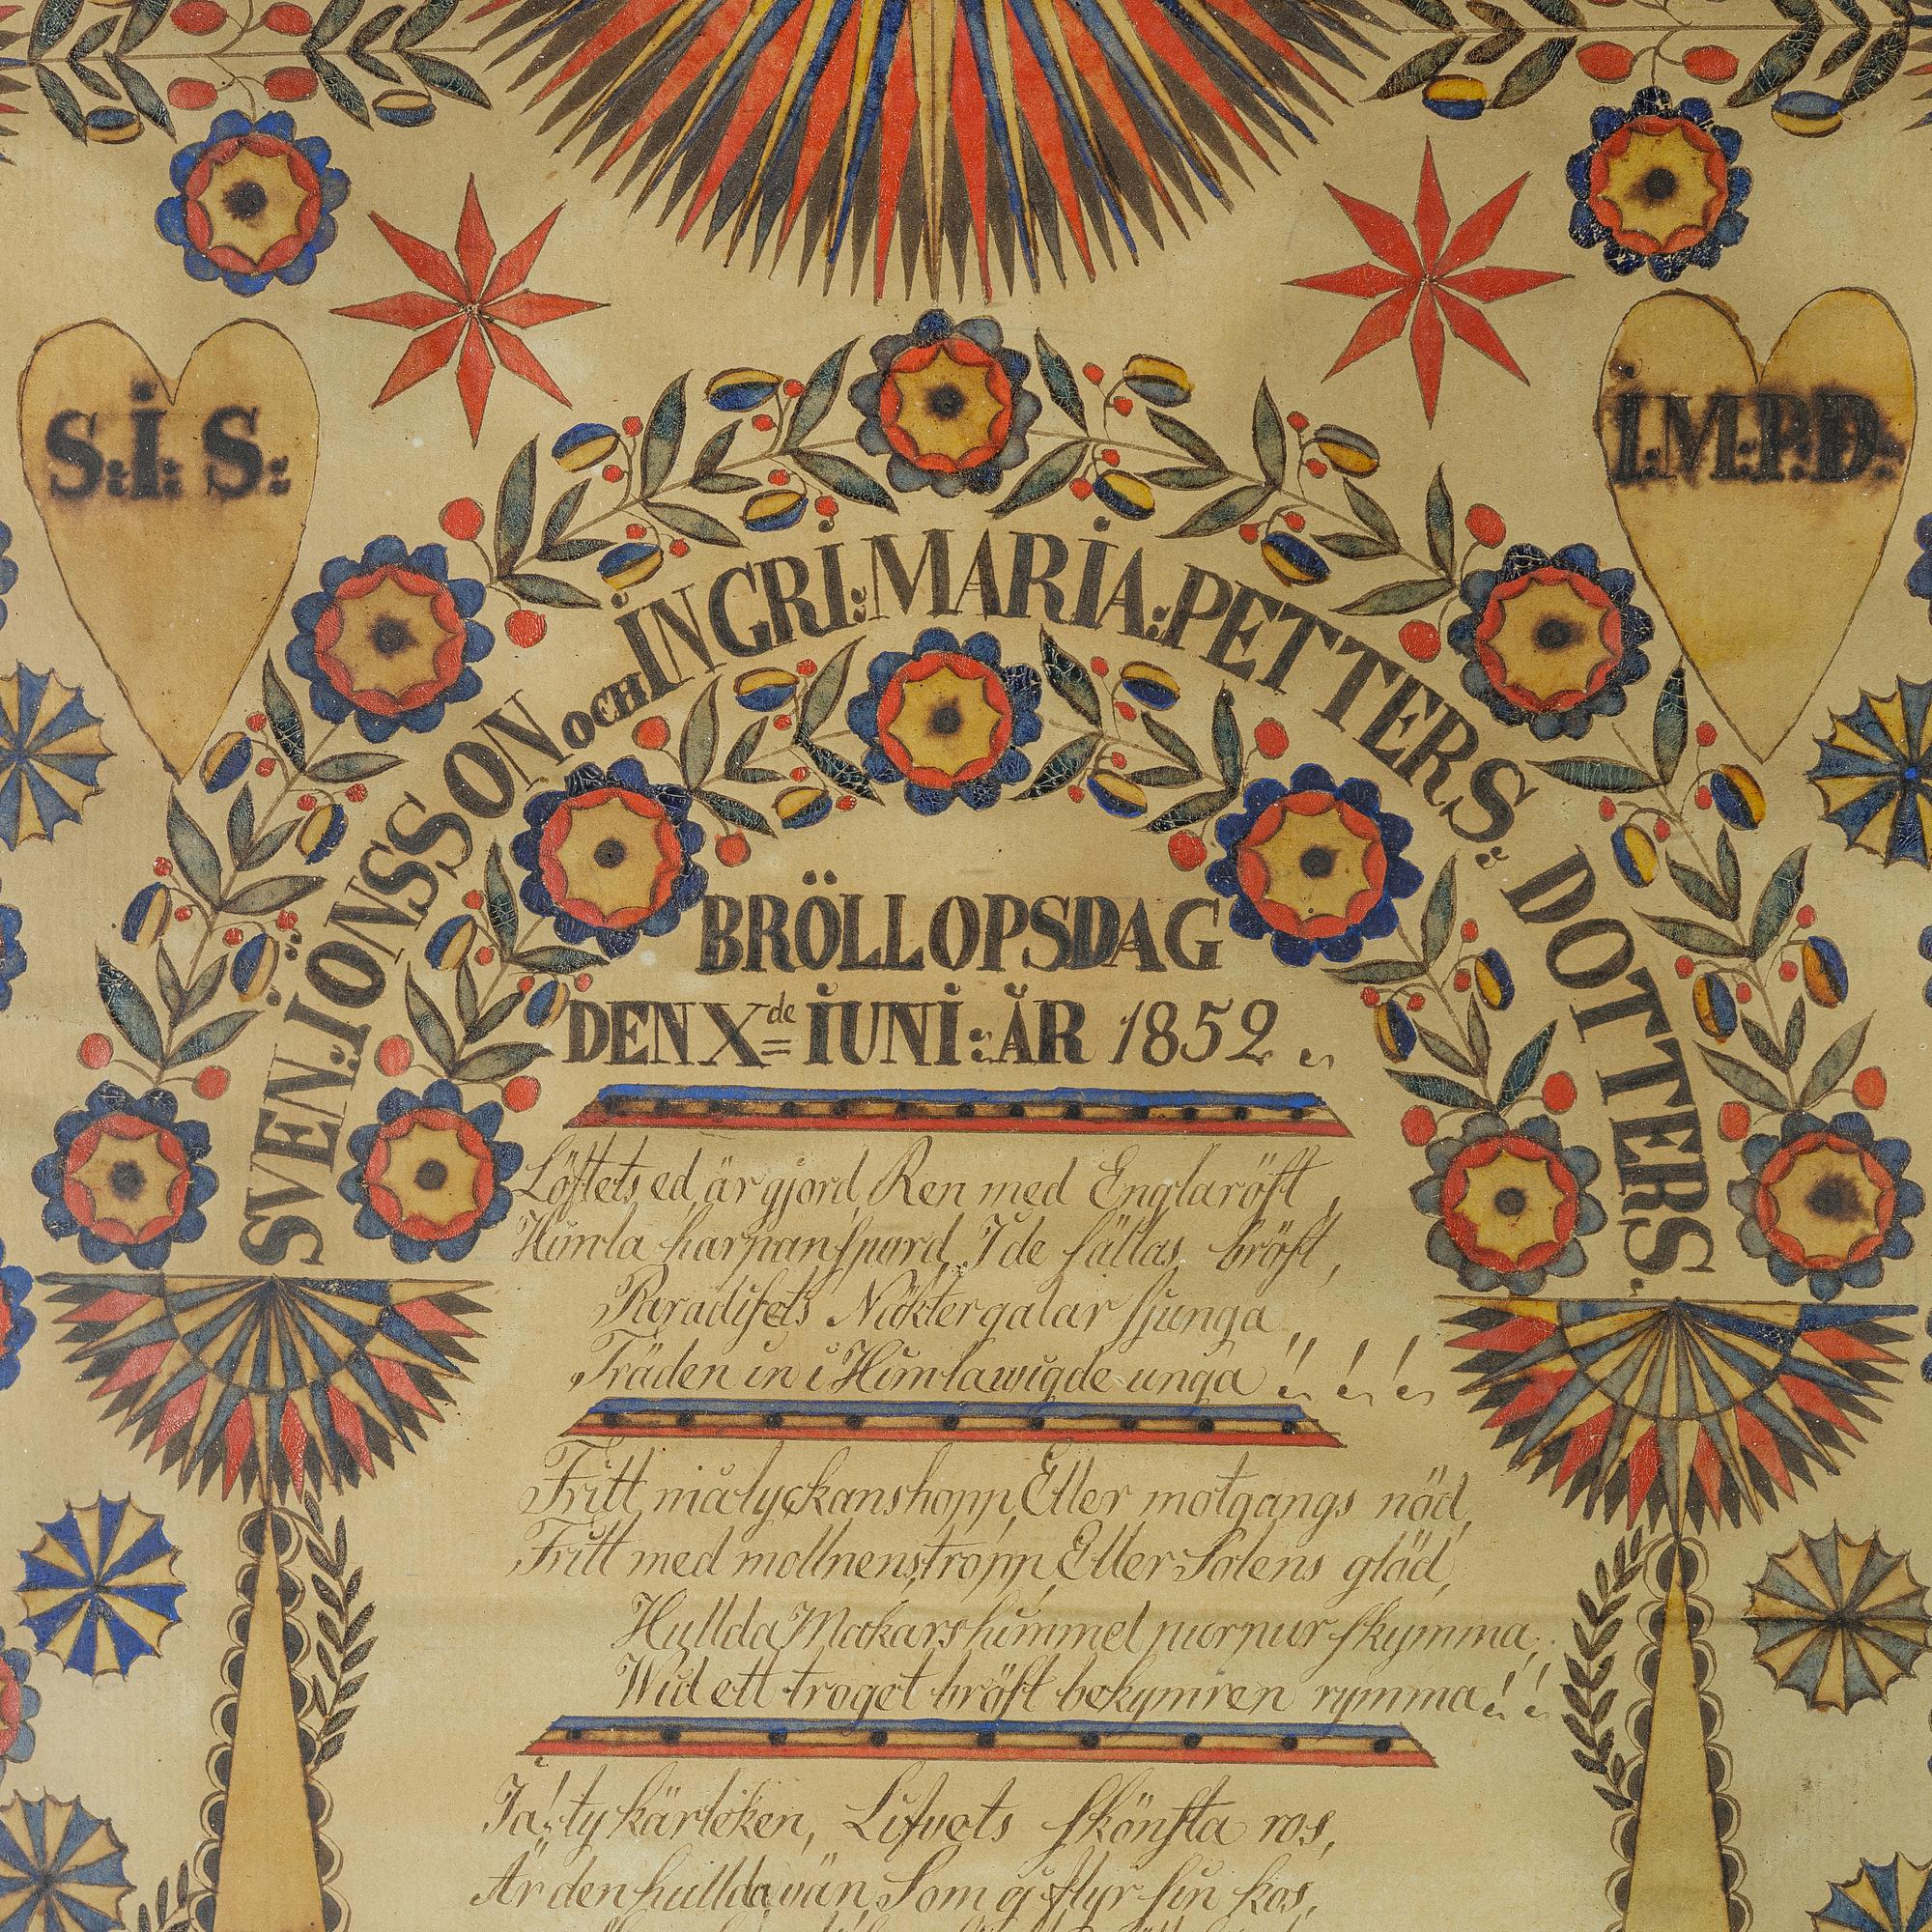 S:I: S:
I:M:P:D:
SVEN:IÖNSSON OCH INGRI:MARIA:PETTERS DOTTERS.
BRÖLLOPSDAG
DEN X de IUNI: ÅR 1852
Löftets ed, är gjord, Ren med Englaröst,
Himla harpan spord, I de sällas bröst,
Paradisets Näktergalar sjunga,,
Träden in i Himlawigde unga! ! ! !
Fritt må lyckans hopp, Eller motgangs nöd,
Fritt med mollnens tropp, Eller Solens glöd,
Hullda Makars himmel purpur skymma,
Wid ett troget bröst bekymren rymma! !
Ja! ty kärleken, Lifvets skönsta ros,
Är den hullda vän, Som ej flyr sin kos,